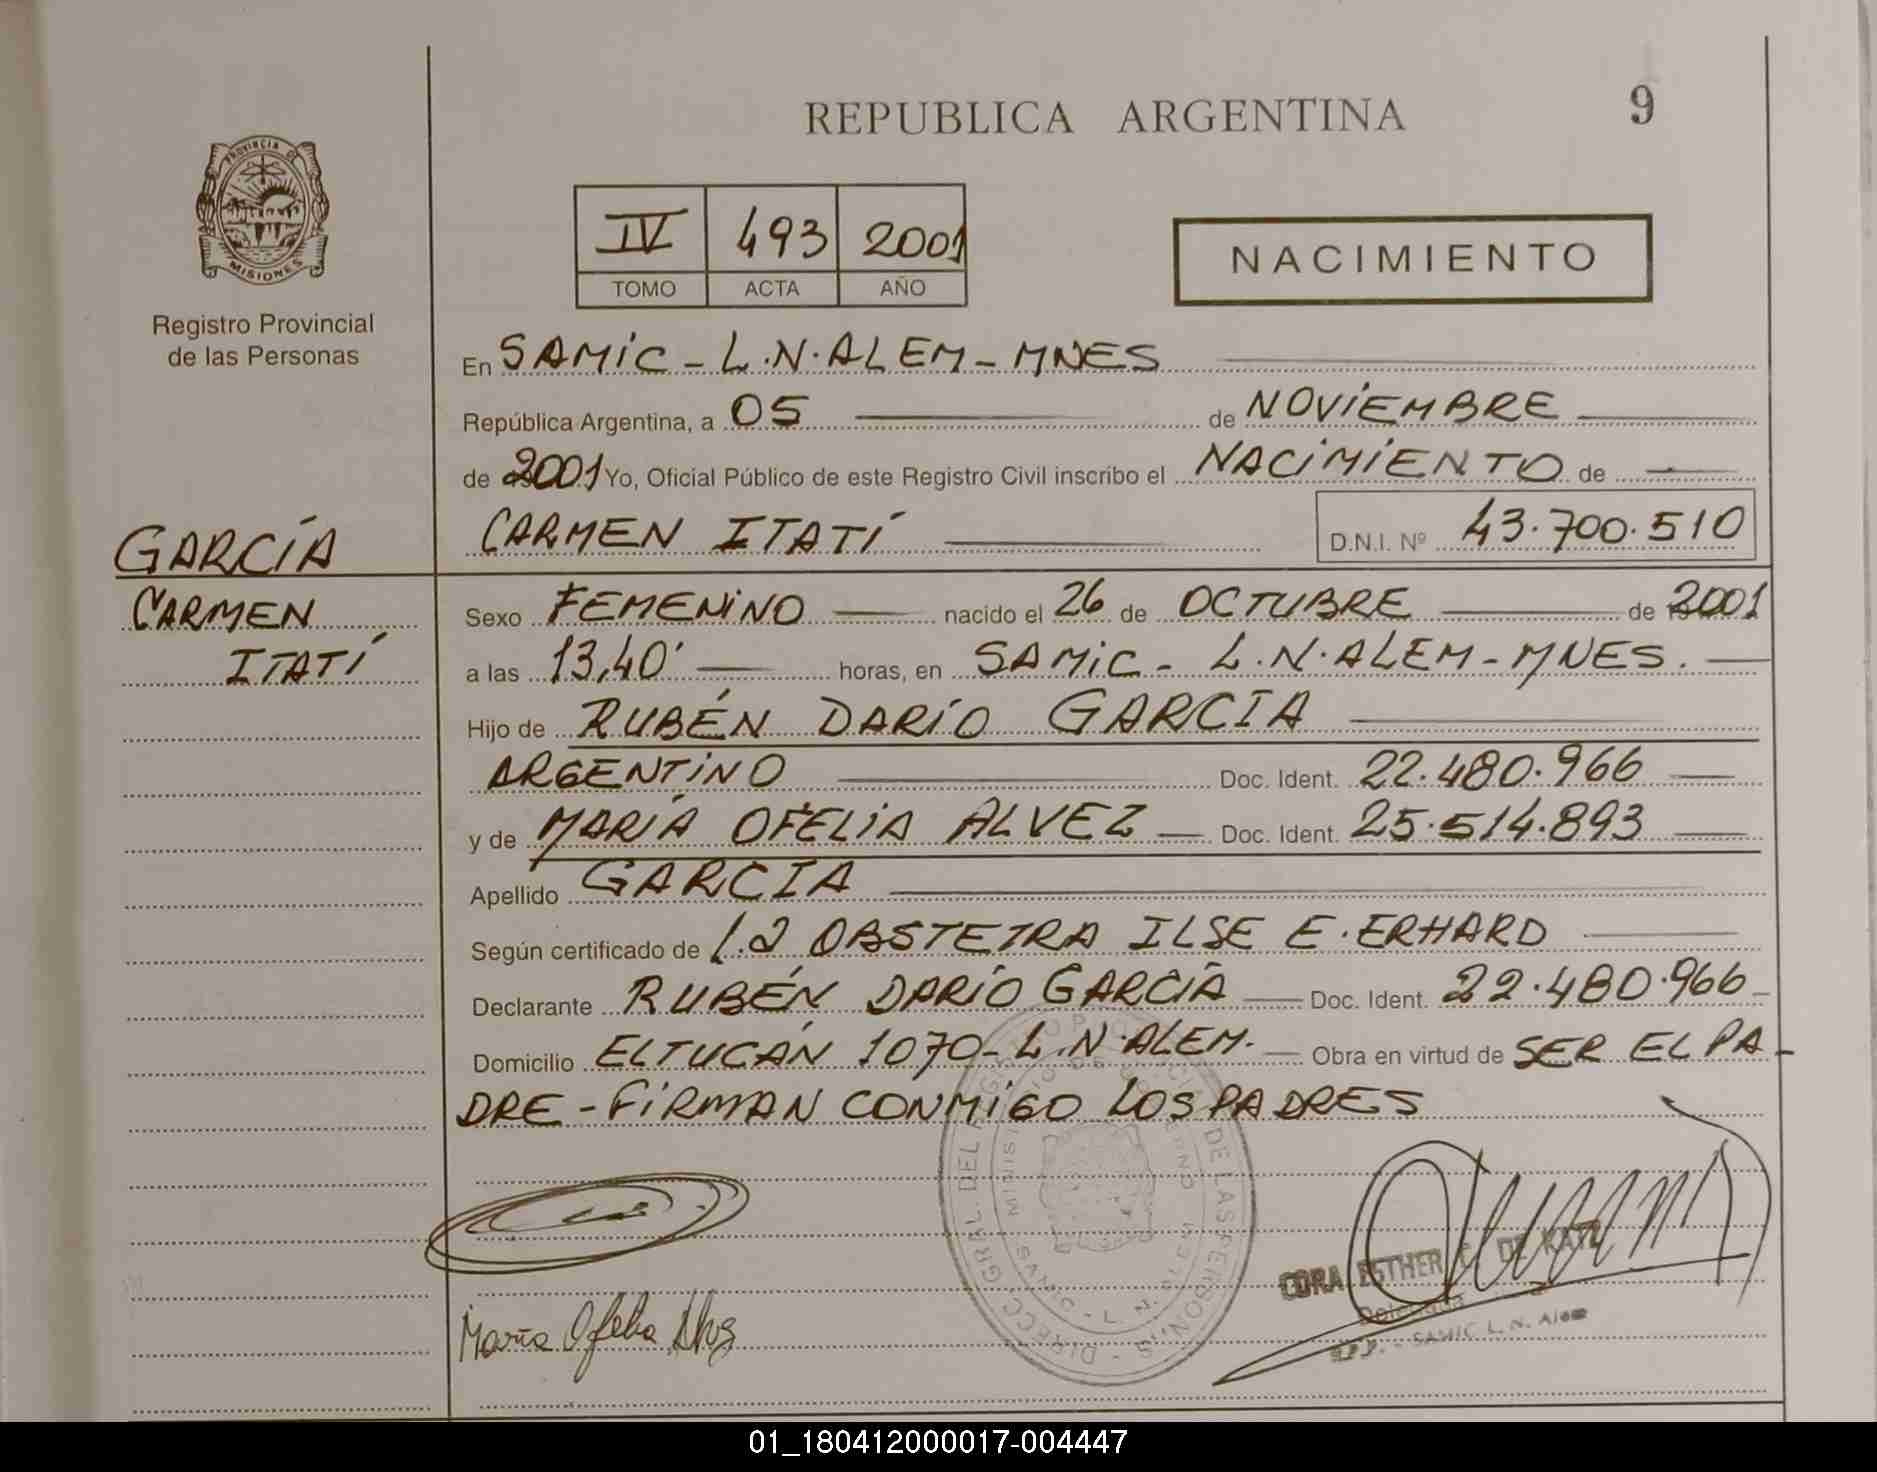 REPUBLICA ARGENTINA
9
PROVINCIA DE
MISIONES
Registro Provincial
de las Personas
IV 493 2001
TOMO ACTA AÑO
NACIMIENTO
En SAMIC - L.N. ALEM - MNES
República Argentina, a 05 de NOVIEMBRE
de 2001 Yo, Oficial Público de este Registro Civil inscribo el NACIMIENTO de
CARMEN ITATÍ D.N.I. Nº 43.700.510
GARCÍA
CARMEN
ITATÍ
Sexo FEMENINO nacido el 26 de OCTUBRE de 2001
a las 13,40' horas, en SAMIC - L.N. ALEM - MNES.
Hijo de RUBÉN DARÍO GARCIA
ARGENTINO Doc. Ident. 22.480.966
y de MARÍA OFELIA ALVEZ Doc. Ident. 25.514.893
Apellido GARCIA
Según certificado de OBSTETRA ILSE E. ERHARD
Declarante RUBÉN DARÍO GARCÍA Doc. Ident. 22.480.966
Domicilio EL TUCÁN 1070 - L.N. ALEM. Obra en virtud de SER EL PA-
DRE - FIRMAN CONMIGO LOS PADRES
María Ofelia Alvez
CORA ESTHER C. DE KATZ
Delegada
SAMIC L. N. Alem
01_180412000017-004447